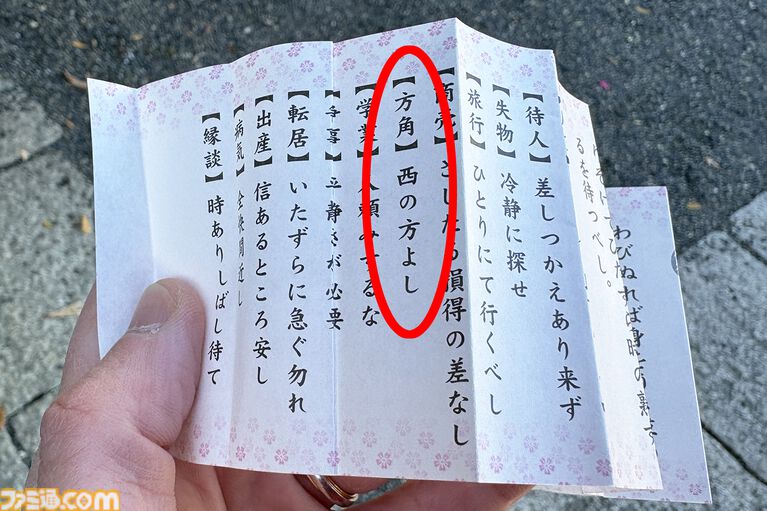 わびぬれば身
るを待つべし。
【待人】差しつかえあり来ず
【失物】冷静に探せ
【旅行】ひとりにて行くべし
【商売】さしたる損得の差なし
【方角】西の方よし
【学業】人頼みするな
【争事】平静さが必要
【転居】いたずらに急ぐ勿れ
【出産】信あるところ安し
【病気】全快間近し
【縁談】時ありしばし待て
ファミ通.com